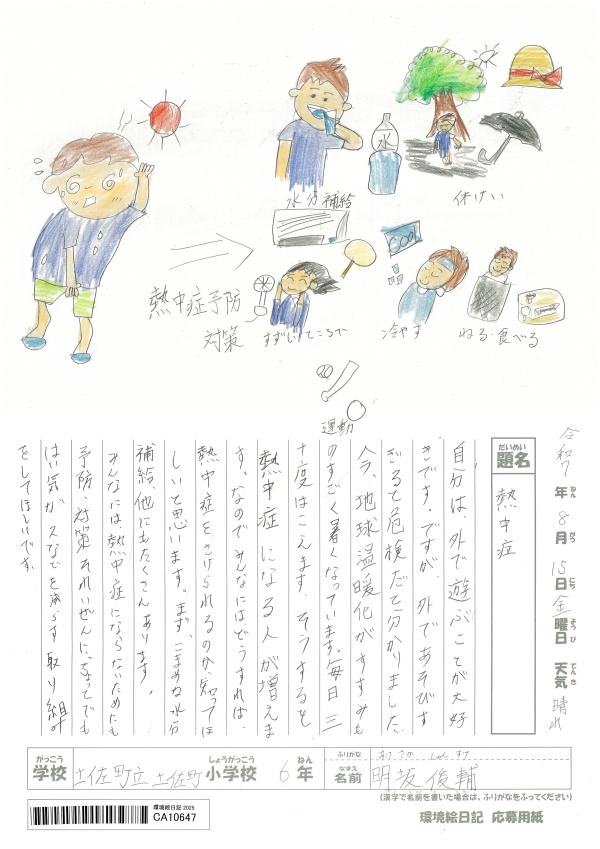 水
水分補給
休けい
COOL
熱中症予防
対策
すずしいところで
冷やす
ねる・食べる
運動
令和7年8月15日金曜日 天気 晴れ
ねん がつ にち ようび てんき
だいめい
題名
熱中症
自分は、外で遊ぶことが大好
きです。ですが、外であそびす
ぎると危検だと分かりました。
今、地球温暖化がすすみも
のすごく暑くなっています。毎日三
十度はこえます。そうすると
熱中症になる人が増えま
す。なのでみんなにはどうすれば、
熱中症をさけられるのか、知ってほ
しいと思います。まず、こまめな水分
補給、他にもたくさんあります。
みんなには熱中症にならないためにも
予防、対策それいぜんに、
はい気ガスなどを減らす取り組み
をしてほしいです。
がっこう
学校
土佐町立土佐町
しょうがっこう
小学校
6
ねん
年
ふりがな
なまえ
名前
明坂俊輔
(漢字で名前を書いた場合は、ふりがなをふってください)
環境絵日記2025
CA10647
環境絵日記 応募用紙